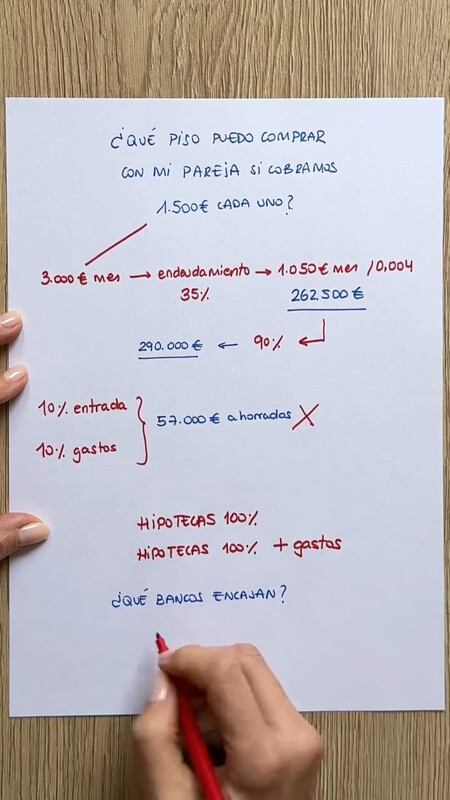 ¿QUÉ PISO PUEDO COMPRAR
CON MI PAREJA SI COBRAMOS
1.500€ CADA UNO?
3.000€ mes → endeudamiento → 1.050€ mes /0,004
35%
262.500€
290.000€ ← 90% ←
10% entrada
57.000€ ahorrados X
10% gastos
HIPOTECAS 100%
HIPOTECAS 100% + gastos
¿QUÉ BANCOS ENCAJAN?